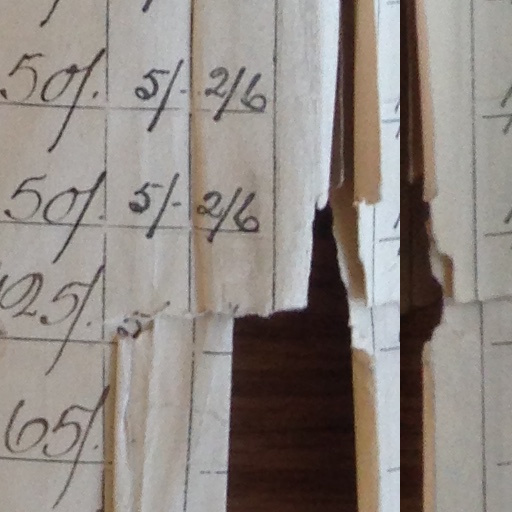 50/. 5/- 2/6
50/. 5/- 2/6
25/. 5
65/.